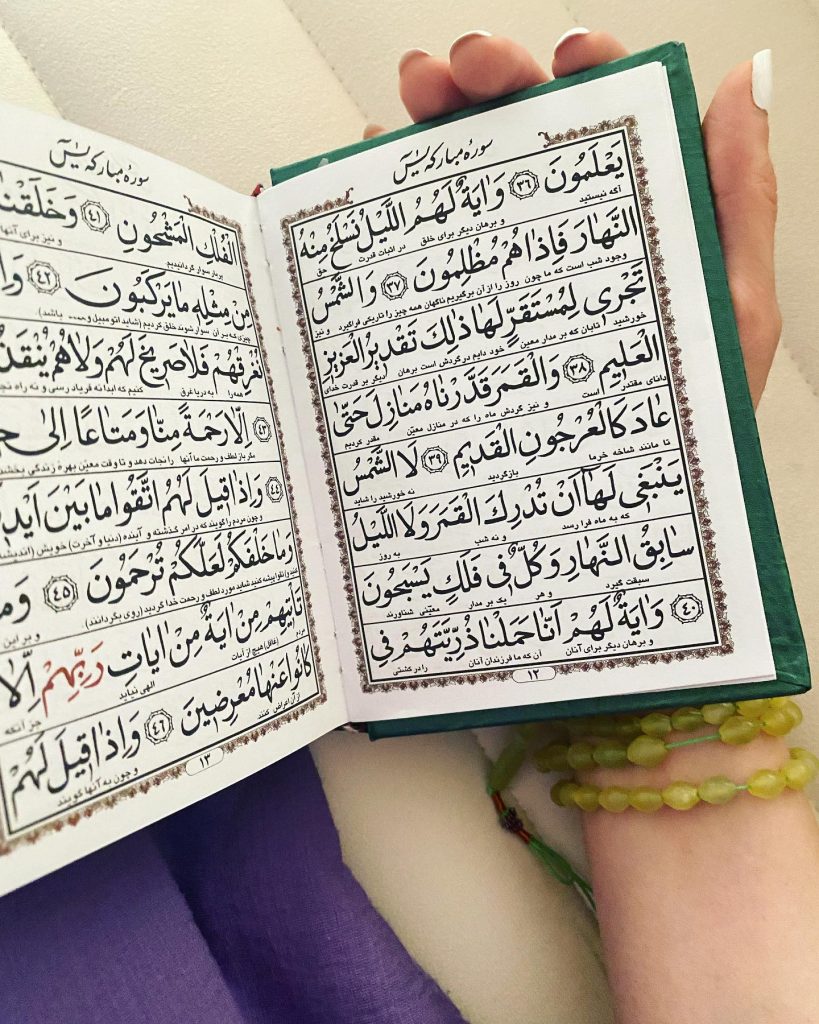 سورهٔ مبارکه یس
یَعْلَمُونَ ٣٦ وَایَةٌ لَهُمُ اللَّیْلُ نَسْلَخُ مِنْهُ
آگه نیستید و برهان دیگر برای خلق در اثبات قدرت حق
النَّهارَ فَاِذاهُمْ مُظْلِمُونَ ٣٧ وَالشَّمْسُ
وجود شب است که ما چون روز را از آن برگیریم ناگهان همه چیز را تاریکی فراگیرد و نیز
تَجْری لِمُسْتَقَرٍّ لَها ذٰلِكَ تَقْدیرُ الْعَزیزِ
خورشید تابان که بر مدار معین خود دایم در گردش است برهان دیگر بر قدرت خدای
الْعَلیمِ ٣٨ وَالْقَمَرَ قَدَّرْناهُ مَنازِلَ حَتّٰی
دانای مقتدر است و نیز گردش ماه را که در منازل معیّن مقدر کردیم
عادَ كَالْعُرْجُونِ الْقَدیمِ ٣٩ لَا الشَّمْسُ
تا مانند شاخه خرما بازگردید نه خورشید را شاید
یَنْبَغی لَها اَنْ تُدْرِكَ الْقَمَرَ وَلَا اللَّیْلُ
که به ماه فرا رسد و نه شب به روز
سابِقُ النَّهارِ وَكُلٌّ فی فَلَكٍ یَسْبَحُونَ
سبقت گیرد و هر یک بر مدار معیّنی شناورند
٤٠ وَایَةٌ لَهُمْ اَنّا حَمَلْنا ذُرِّیَّتَهُمْ فِی
و برهان دیگر برای آنان آن که ما فرزندان آنان را در کشتی
١٢
سورهٔ مبارکه یس
الْفُلْكِ الْمَشْحُونِ ٤١ وَخَلَقْنا
پربار سوار گردانیدیم و نیز برای آنها
مِنْ مِثْلِهِ مایَرْكَبُونَ ٤٢ وَاِ
نُغْرِقْهُمْ فَلاصَریخَ لَهُمْ وَلاهُمْ یُنْقَذُ
همه را به دریا غرق کنیم که ابدا نه فریاد رسی و نه راه نجا
٤٣ اِلّا رَحْمَةً مِنّا وَمَتاعًا اِلٰی
مگر باز لطف و رحمت ما آنها را نجات دهد و تا وقت معیّن بهرهٔ زندگی بخشد
٤٤ وَاِذا قیلَ لَهُمُ اتَّقُوا ما بَیْنَ اَیْدی
و چون مردم را گویند که در امر گذشته و آینده (دنیا و آخرت) خویش
وَما خَلْفَكُمْ لَعَلَّكُمْ تُرْحَمُونَ ٤٥ وَم
تقوا پیشه کنید شاید مورد لطف و رحمت خدا گردید (روی بگردانند) و بر این
تَاْتیهِمْ مِنْ ایَةٍ مِنْ ایاتِ رَبِّهِمْ اِلّا
مردم (غافل) هیچ از آیات الهی نیاید جز آنکه
كانُوا عَنْها مُعْرِضینَ ٤٦ وَاِذا قیلَ لَهُمْ
از آن اعراض کنند و چون به آنها گویند
١٣